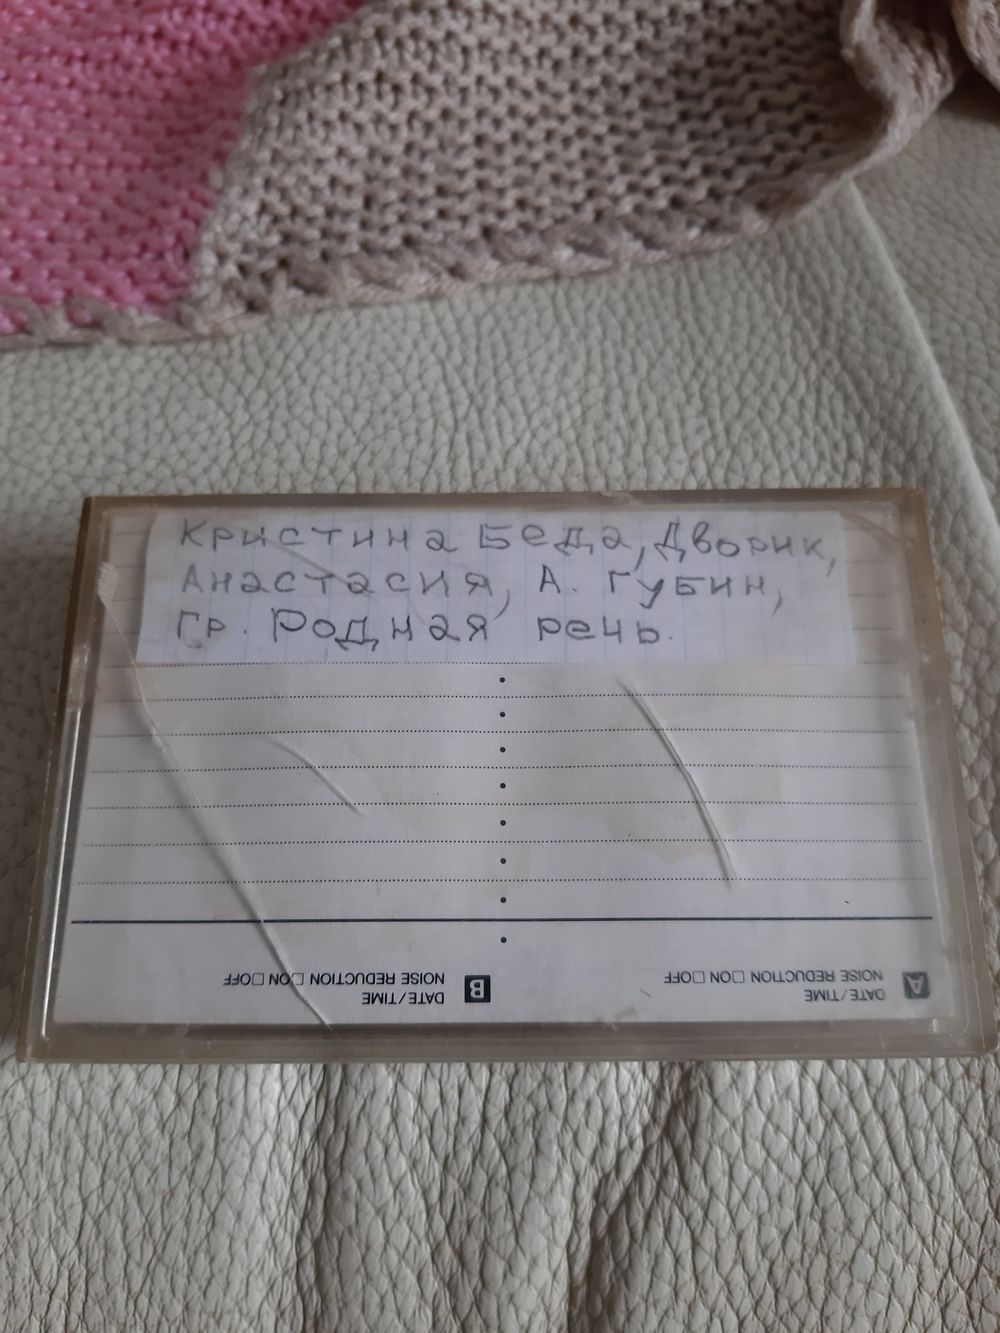 Кристина Беда, Дворик,
Анастасия, А. Губин,
Гр. Родная речь.
B DATE/TIME
NOISE REDUCTION □ ON □ OFF
A DATE/TIME
NOISE REDUCTION □ ON □ OFF